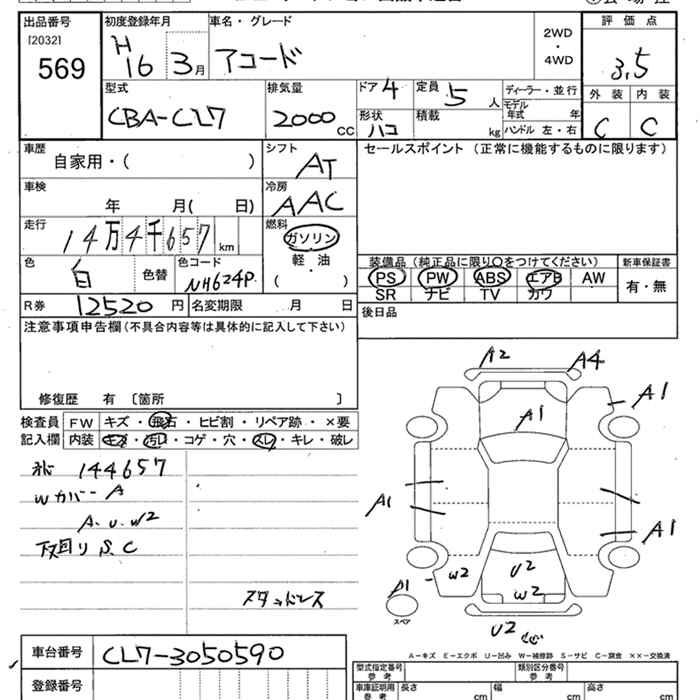 出品番号 初度登録年月 車名・グレード 2WD・4WD 評価点
[2032]
569
H16 3月 アコード 3.5
型式 排気量 ドア 4 定員 5人 ディーラー・並行 外装 内装
CBA-CL7 2000 CC 形状 ハコ 積載 kg モデル年式 年 C C
ハンドル 左・右
車歴 シフト セールスポイント (正常に機能するものに限ります)
自家用・( ) AT
車検 冷房
年 月( 日) AAC
走行 燃料
14万4千657 km ガソリン
軽・油
( )
色 白 色替 色コード NH624P
装備品 (純正品に限り○をつけてください) 新車保証書
PS PW ABS エアB AW 有・無
SR ナビ TV カワ
R券 12520 円 名変期限 月 日 後日品
注意事項申告欄 (不具合内容等は具体的に記入して下さい)
修復歴 有 〔箇所 〕
検査員 FW キズ・飛石・ヒビ割・リペア跡・×要
記入欄 内装 キズ・汚レ・コゲ・穴・スレ・キレ・破レ
144657
Wカバー A
A.U.W2
下回り S.C
スタッドレス
A2 A4
A1 A1
A1 A1
A1 W2 U2
W2
スペア U2
A-キズ E-エクボ U-凹み W-補修跡 S-サビ C-腐食 ××-交換済
車台番号 CL7-3050590
登録番号
型式指定番号 参考 類別区分番号 参考
車庫証明用 参考 長さ cm 幅 cm 高さ cm